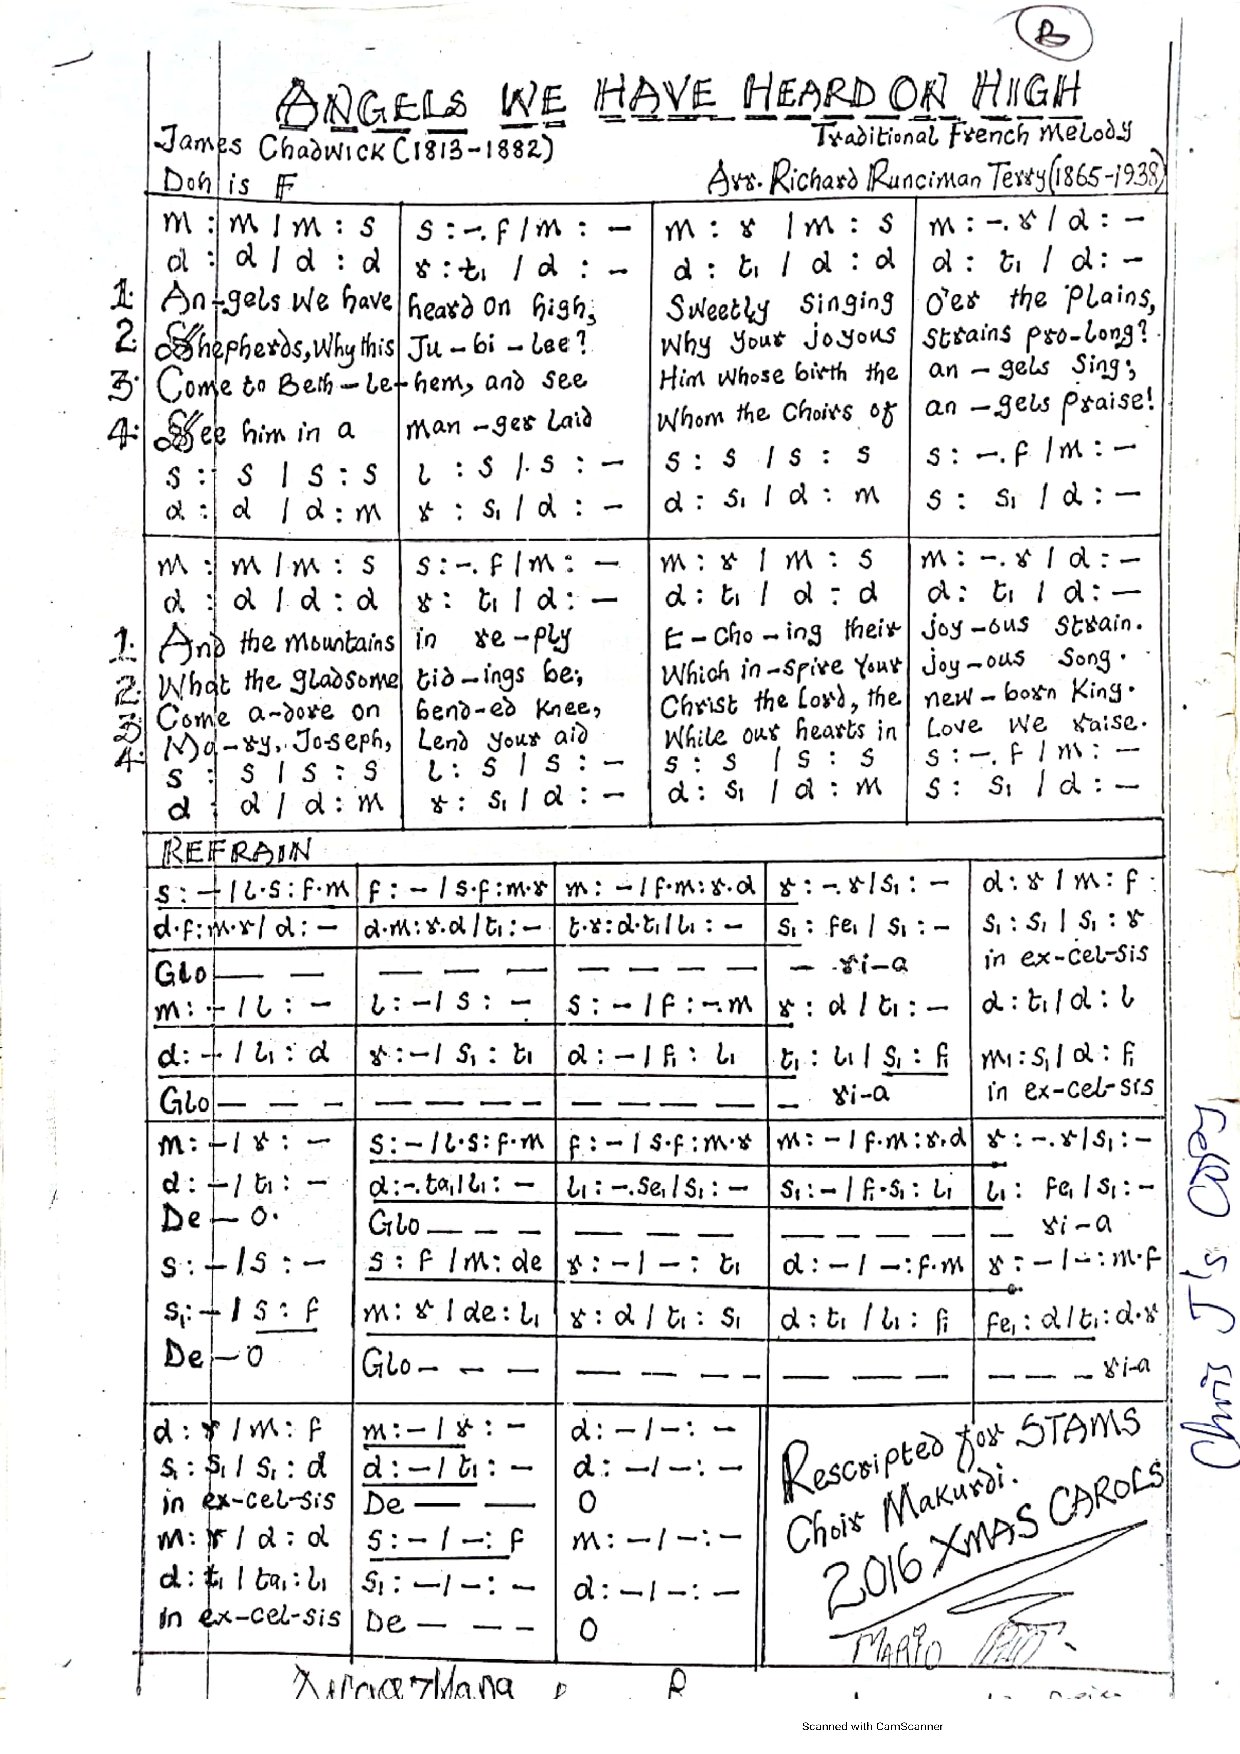 B
ANGELS WE HAVE HEARD ON HIGH
James Chadwick (1813-1882) Traditional French Melody
Doh is F Arr. Richard Runciman Terry (1865-1938)
m : m / m : s s : -. f / m : - m : r / m : s m : -. r / d : -
d : d / d : d r : t₁ / d : - d : t₁ / d : d d : t₁ / d : -
1. An-gels we have heard on high, Sweetly Singing O'er the Plains,
2. Shepherds, Why this Ju-bi-lee? Why your joyous Strains pro-long?
3. Come to Beth-le-hem, and see Him whose birth the an-gels Sing;
4. See him in a man-ger laid Whom the Choirs of an-gels praise!
s : s / s : s l : s / s : - s : s / s : s s : -. f / m : -
d : d / d : m r : s₁ / d : - d : s₁ / d : m s : s₁ / d : -
m : m / m : s s : -. f / m : - m : r / m : s m : -. r / d : -
d : d / d : d r : t₁ / d : - d : t₁ / d : d d : t₁ / d : -
1. And the mountains in re-ply E-cho-ing their joy-ous strain.
2. What the gladsome tid-ings be; Which in-spire your joy-ous Song.
3. Come a-dore on bend-ed knee, Christ the Lord, the new-born King.
4. Ma-ry, Joseph, Lend your aid While our hearts in Love we raise.
s : s / s : s l : s / s : - s : s / s : s s : -. f / m : -
d : d / d : m r : s₁ / d : - d : s₁ / d : m s : s₁ / d : -
REFRAIN
s : - / l.s : f.m f : - / s.f : m.r m : - / f.m : r.d r : -. r / s₁ : - d : r / m : f
d.f : m.r / d : - d.m : r.d / t₁ : - t.r : d.t₁ / l₁ : - s₁ : fe₁ / s₁ : - s₁ : s₁ / s₁ : r
Glo — — — — — — — — — — — - ri-a in ex-cel-sis
m : - / l : - l : - / s : - s : - / f : -. m r : d / t₁ : - d : t₁ / d : l
d : - / l₁ : d r : - / s₁ : t₁ d : - / f₁ : l₁ t₁ : l₁ / s₁ : f₁ m₁ : s₁ / d : f₁
Glo — — — — — — — — — — — — - ri-a in ex-cel-sis
m : - / r : - s : - / l.s : f.m f : - / s.f : m.r m : - / f.m : r.d r : -. r / s₁ : -
d : - / t₁ : - d : -. ta₁ / l₁ : - l₁ : -. se₁ / s₁ : - s₁ : - / f₁.s₁ : l₁ l₁ : fe₁ / s₁ : -
De - o. Glo — — — — — — — — — — — - ri-a
s : - / s : - s : f / m : de r : - / - : t₁ d : - / - : f.m r : - / - : m.f
s₁ : - / s : f m : r / de : l₁ r : d / t₁ : s₁ d : t₁ / l₁ : f₁ fe₁ : d / t₁ : d.r
De - o Glo - - - — — — - — — — — — — - ri-a
d : r / m : f m : - / r : - d : - / - : -
s₁ : s₁ / s₁ : d d : - / t₁ : - d : - / - : -
in ex-cel-sis De — — O
m : r / d : d s : - / - : f m : - / - : -
d : t₁ / ta₁ : l₁ s₁ : - / - : - d : - / - : -
in ex-cel-sis De — - - O
Rescripted for STAMS
Choir Makurdi.
2016 XMAS CAROLS
MARIO
Chris J's Copy
Scanned with CamScanner